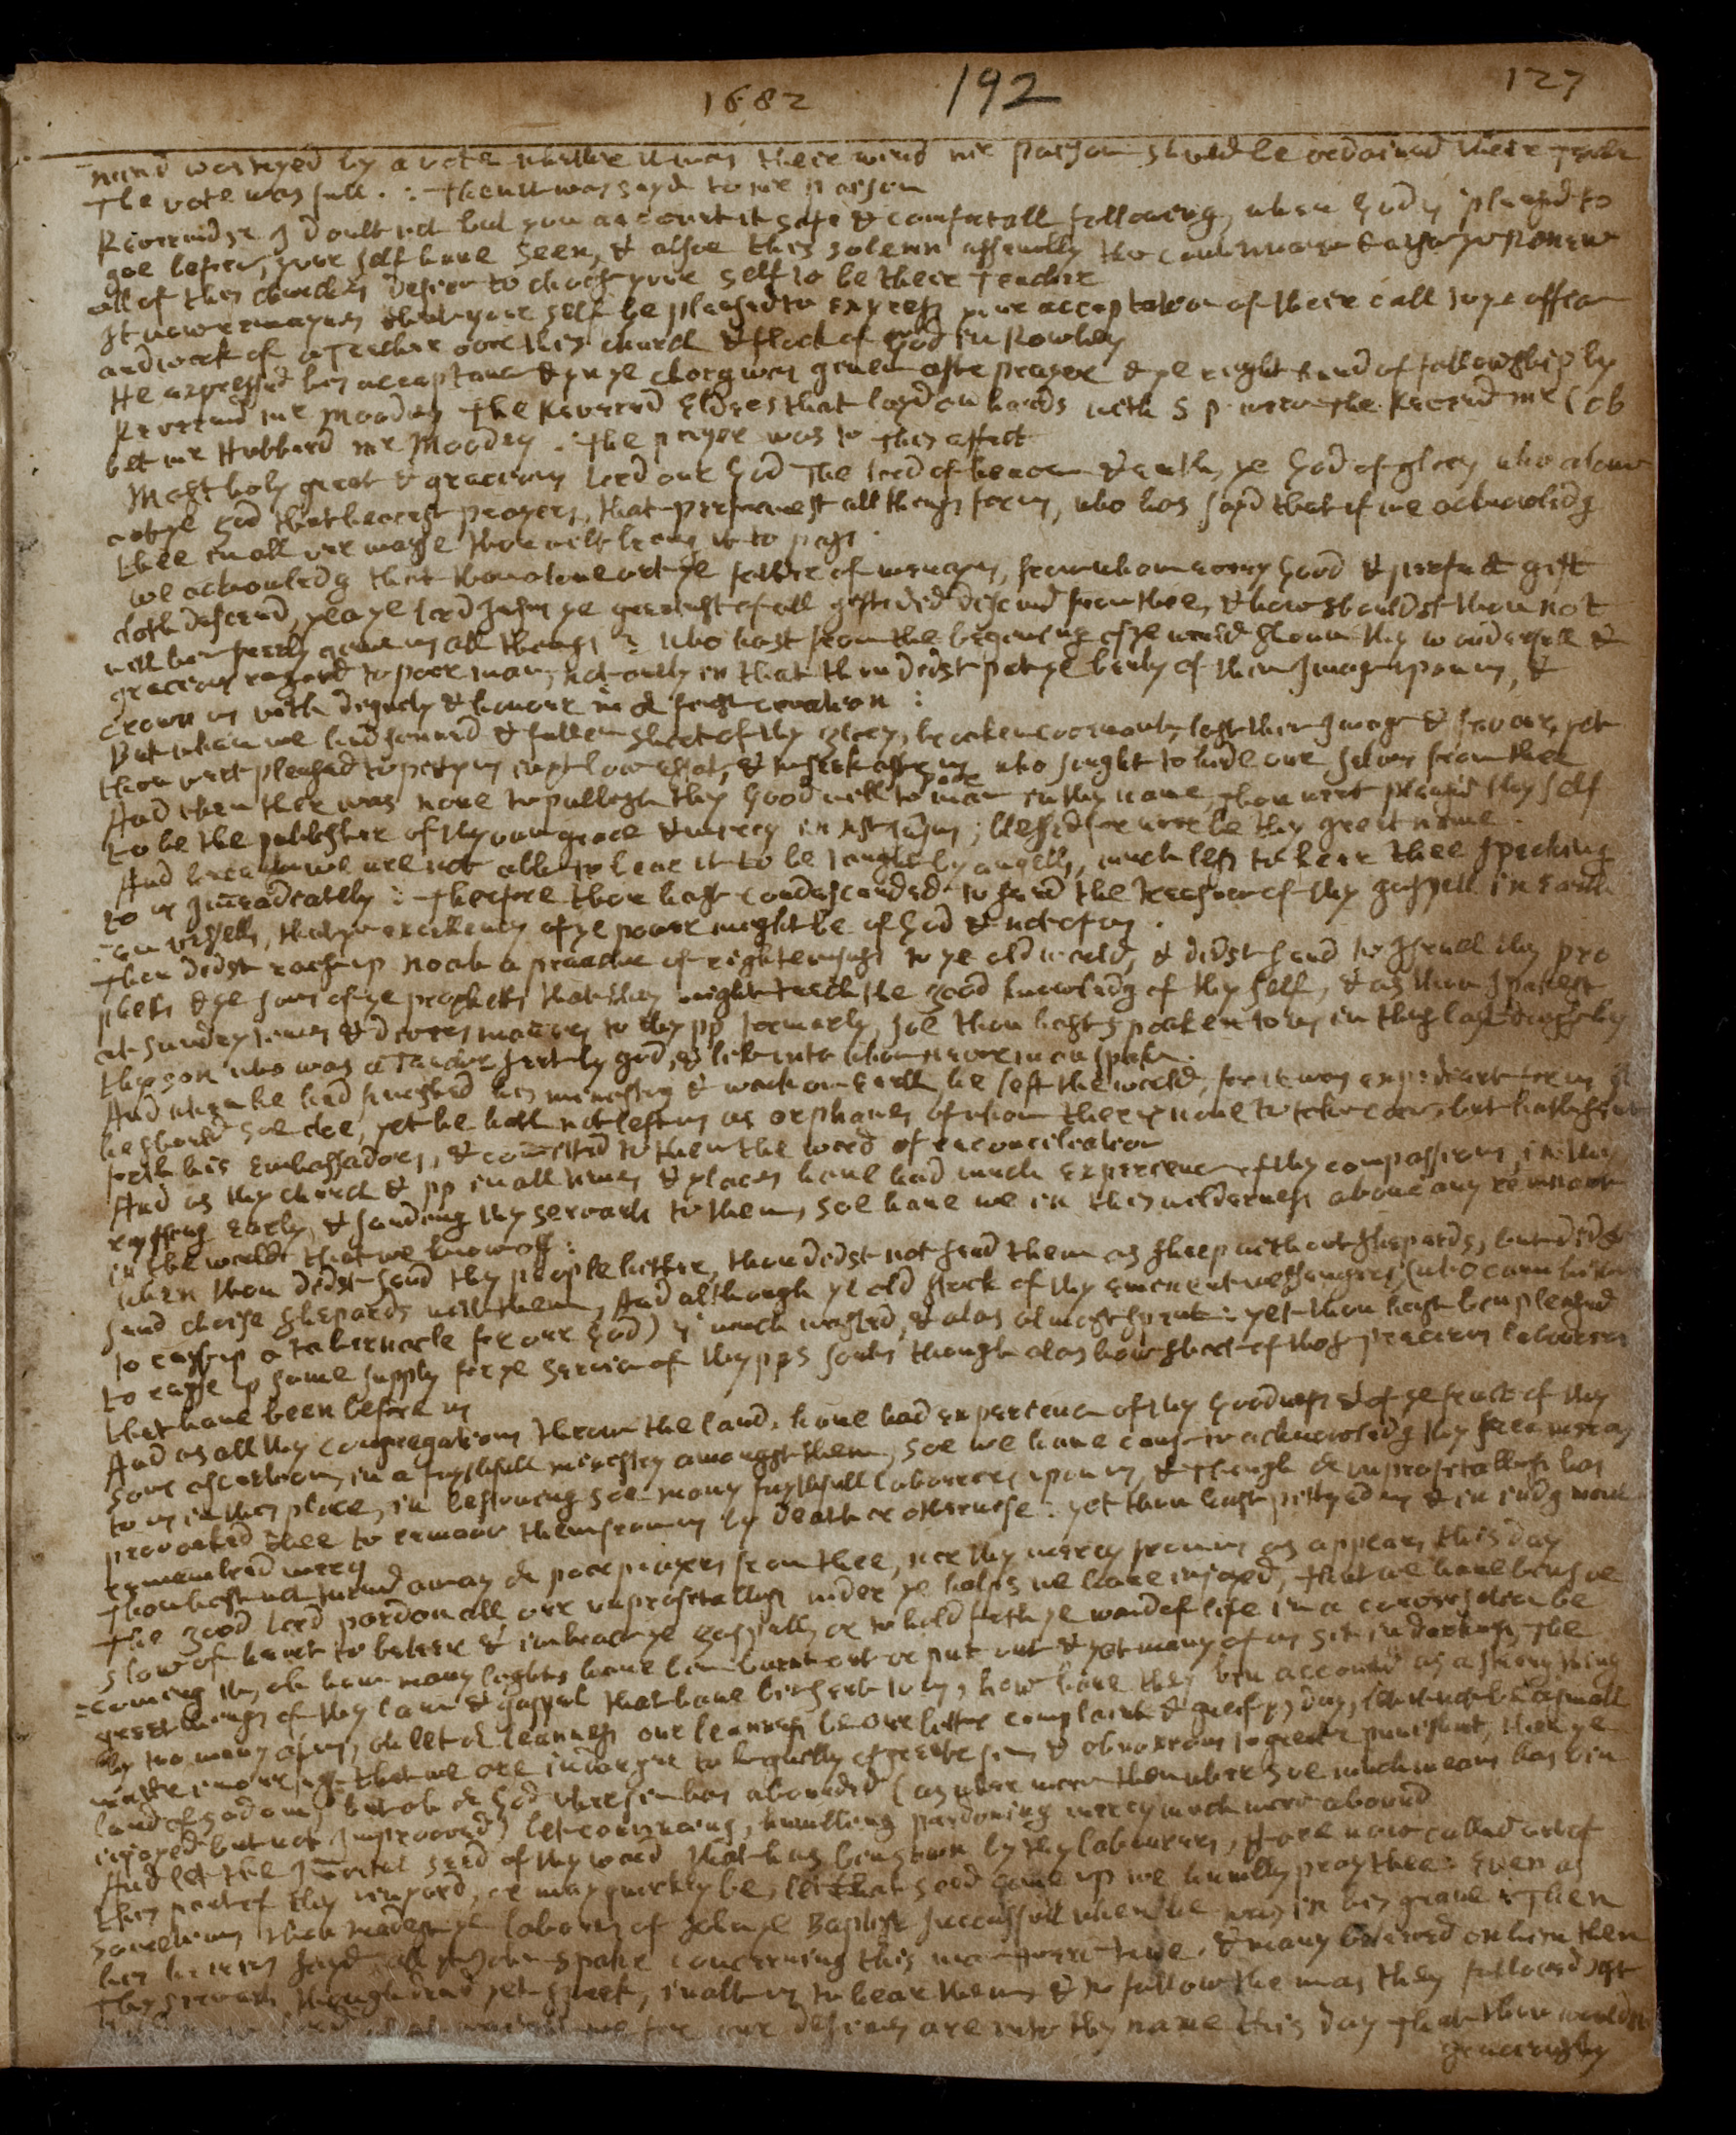 1682 192 127
mind was tryed by a vote whether it was there mind mr Paison should be ordained there Teacher
The vote was full . : Then it was sayd to mr paison
Reverend sr I doubt not but you account it safe & comfortabll following, when God is pleased to
goe before, your self have seen, & alsoe this solemn assembly the &
all of this church's desire to choose your self to be there Teacher
It now remaynes that your self be pleased to express your acceptation of there call to ye office
and work of a Teacher over this church & flock of god in Rowley
He expressed his acceptance & yn ye charg was given after prayer & ye right hand of fellowship by
Reverend mr Moodey The Revered Elders that layd on hands with S p were the Revered mr Cob
bet mr Hubbard mr Moodey . The prayer was to this affect
Most holy great & gracious lord our God The lord of heaven & earth, ye God of glory who alone
art ye God that hearest prayers, that performest all things for us, who has sayd that if we acknowledg
thee in all our wayse thou wilt bring it to pass .
we acknowledg that thou alone art ye father of mercyes, from whom every good & perfect gift
doth descend, yea ye lord Jesus ye greatest of all gifts did descend from thee, & how shouldst thou not
with him freely give us all things : who hast from the begining of ye world showne thy wonderfull &
gracious regard to poor man, not only in that thou didst put ye beuty of thine Image upon us, &
crown us with dignity & honour in ye first creation :
But when we had sinned & fallen short of thy glory, broken covenant, lost thine Image & favour, yet
thou wert pleased to pitty us in low estat, & to seek after us who sought to hide our selves from thee
And when ther was none to publish thy good will to poor man in thy name, thou wert pleased thy self
to be the publisher of thy own grace & mercy in xst Jesus ; blessed for ever be thy great name .
And because we are not able to bear it to be taught by angells, much less to hear thee speaking
to us immediately : Therefore thou hast condescended to send the treasure of thy gospell in earth
en vessells, that ye excellency of ye power might be of God & not of us .
Thou didst rayse up noah a preacher of righteousnes to ye old world, & didst send to Israell thy pro
phets & ye sons of ye prophets that they might teach the good knowledg of thy self, & as thou spakest
at sundry times & divers maners to thy pp formerly, soe thou hast spoken to us in these last dayes by
thy son who was a Teacher sent by god, & like unto whom never man spake .
And when he had finished his ministry & work on earth he left the world, for it was expedient for us
he should soe doe, yet he hath not left us as orphanes of whom there is none to take care, but hath sent
forth his Embassadors, & comitted to them the word of reconciliation
And as thy church & pp in all times & places have had much experience of thy compassions, in thy
rysing early, & sending thy servants to them, soe have we in this wilderness above any remnant
in the world that we know off :
when thou didst send thy people hither, thou didst not send them as sheep without shepards, but didst
send choise shepards with them, And although ye old stock of thy eminent messengers (who came hither
to rayse up a tabernacle for our God) is much wasted, & alas almost spent : yet thou hast ben pleased
to rayse up some supply for ye service of thy pps souls though alas how short of those precious laborers
that have been before us
And as all thy congregations throw the land, have had experience of thy goodness & of ye fruit of thy
sons ascention, in a faythfull ministry amongst them, soe we have cause to acknowledg thy free mercy
to us in this place, in bestowing soe many faythfull laborers upon us, & though or unprofitablness has
provoked thee to remove them from us by death or otherwise : yet thou hast pittyed us & in iudgment
remembred mercy
Thou hast not turned away or poor prayers from thee, nor thy mercy from us as appears this day
The good lord pardon all our unprofitablness under ye helps we have injoyed, that we have bin soe
slow of heart to beleve & imbrace ye gospell, or to hold forth ye word of life in a conversation be
coming it, oh how many lights have bin burnt out or put out & yet many of us sit in darkness, The
great things of thy law & gospel that have bin sent to us, how have they bin accounted as a strang thing
by too many of us, oh let or leanness our leanness be our bitter complaint & greif ys day, let it not be a small
matter in our eyes that we are in danger to be guilty of greater sins & obnoxious to greater punishment, then ye
land of sodom, but oh or God where sin has abounded (as where more then where soe much means has bin
injoyed but not improoved) let convincing, humbling pardoning mercy much more abound
And let the imortal seed of thy word that has bin sown by thy labourers, yt are now called out of
this part of thy vinyard, or may quickly be, let that seed come up we humbly pray thee : even as
sometimes thou madest ye labors of John ye Baptist successfull when he was in his grave & then
his hearers sayd, all yt John spake concerning this man were true, & many beleved on him then
Thy servants though dead yet speak, inable us to hear them & to follow them as they followed xst
our desires are unto thy name this day that thou wouldst
graciously